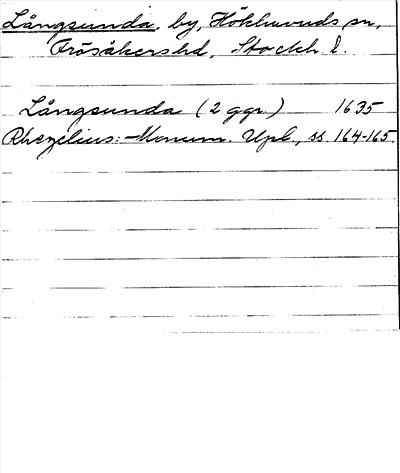 Långsunda, by, Hökhuvuds sn,
Frösåkers hd, Stockh. l.
Långsunda (2 ggr.) 1635
Rhezelius: Monum. Upl., ss. 164-165.